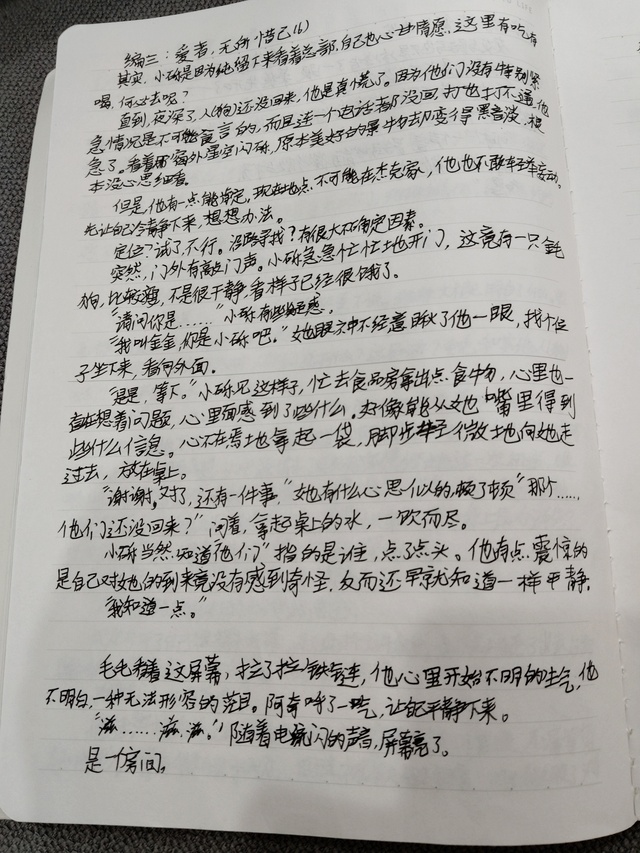 编三:爱者,无所惜己(6)
其实,小砾是因为纯留下来看着总部,自己也心甘情愿,这里有吃有
喝,何必去呢?
直到,夜深了,人(狗)还没回来,他是真慌了。因为他们没有特别紧
急情况是不可能食言的,而且连一个电话都没回,打也打不通,他
急了。看着窗外星空闪砾,原本美好的景物却变得黑暗淡,根
本没心思细看。
但是,他有一点能肯定,现在地点不可能在杰克家,他也不敢轻举妄动,
先让自己冷静下来,想想办法。
定位?试了,不行。沿路寻找?有很大不确定因素。
突然,门外有敲门声。小砾急急忙忙地开门,这竟有一只
狗,比较,不是很干静,看样子已经很饿了。
“请问你是……”小砾有些疑惑。
“我叫金金,你是小砾吧。”她眼中不经意瞅了他一眼,找个位
子坐下来,看向外面。
“是是,等下。”小砾见这样子,忙去食品房拿出点食物,心里也一
直在想着问题,心里面感到了些什么。好像能从她嘴里得到
些什么信息。心不在焉地拿起一袋,脚步轻微地向她走
过去,放在桌上。
“谢谢。对了,还有一件事,”她有什么心思似的,顿了顿“那个……
他们还没回来?”问着,拿起桌上的水,一饮而尽。
小砾当然知道“他们”指的是谁,点了点头。他有点震惊的
是自己对她的到来竟没有感到奇怪,反而还早就知道一样平静。
“我知道一点。”
毛毛看这屏幕,拉了拉铁链,他心里开始不明的生气,他
不明白,一种无法形容的茫目。阿奇哼了一吃,让自己平静下来。
“滋……滋,滋。”随着电流闪的声音,屏幕亮了。
是一个房间,